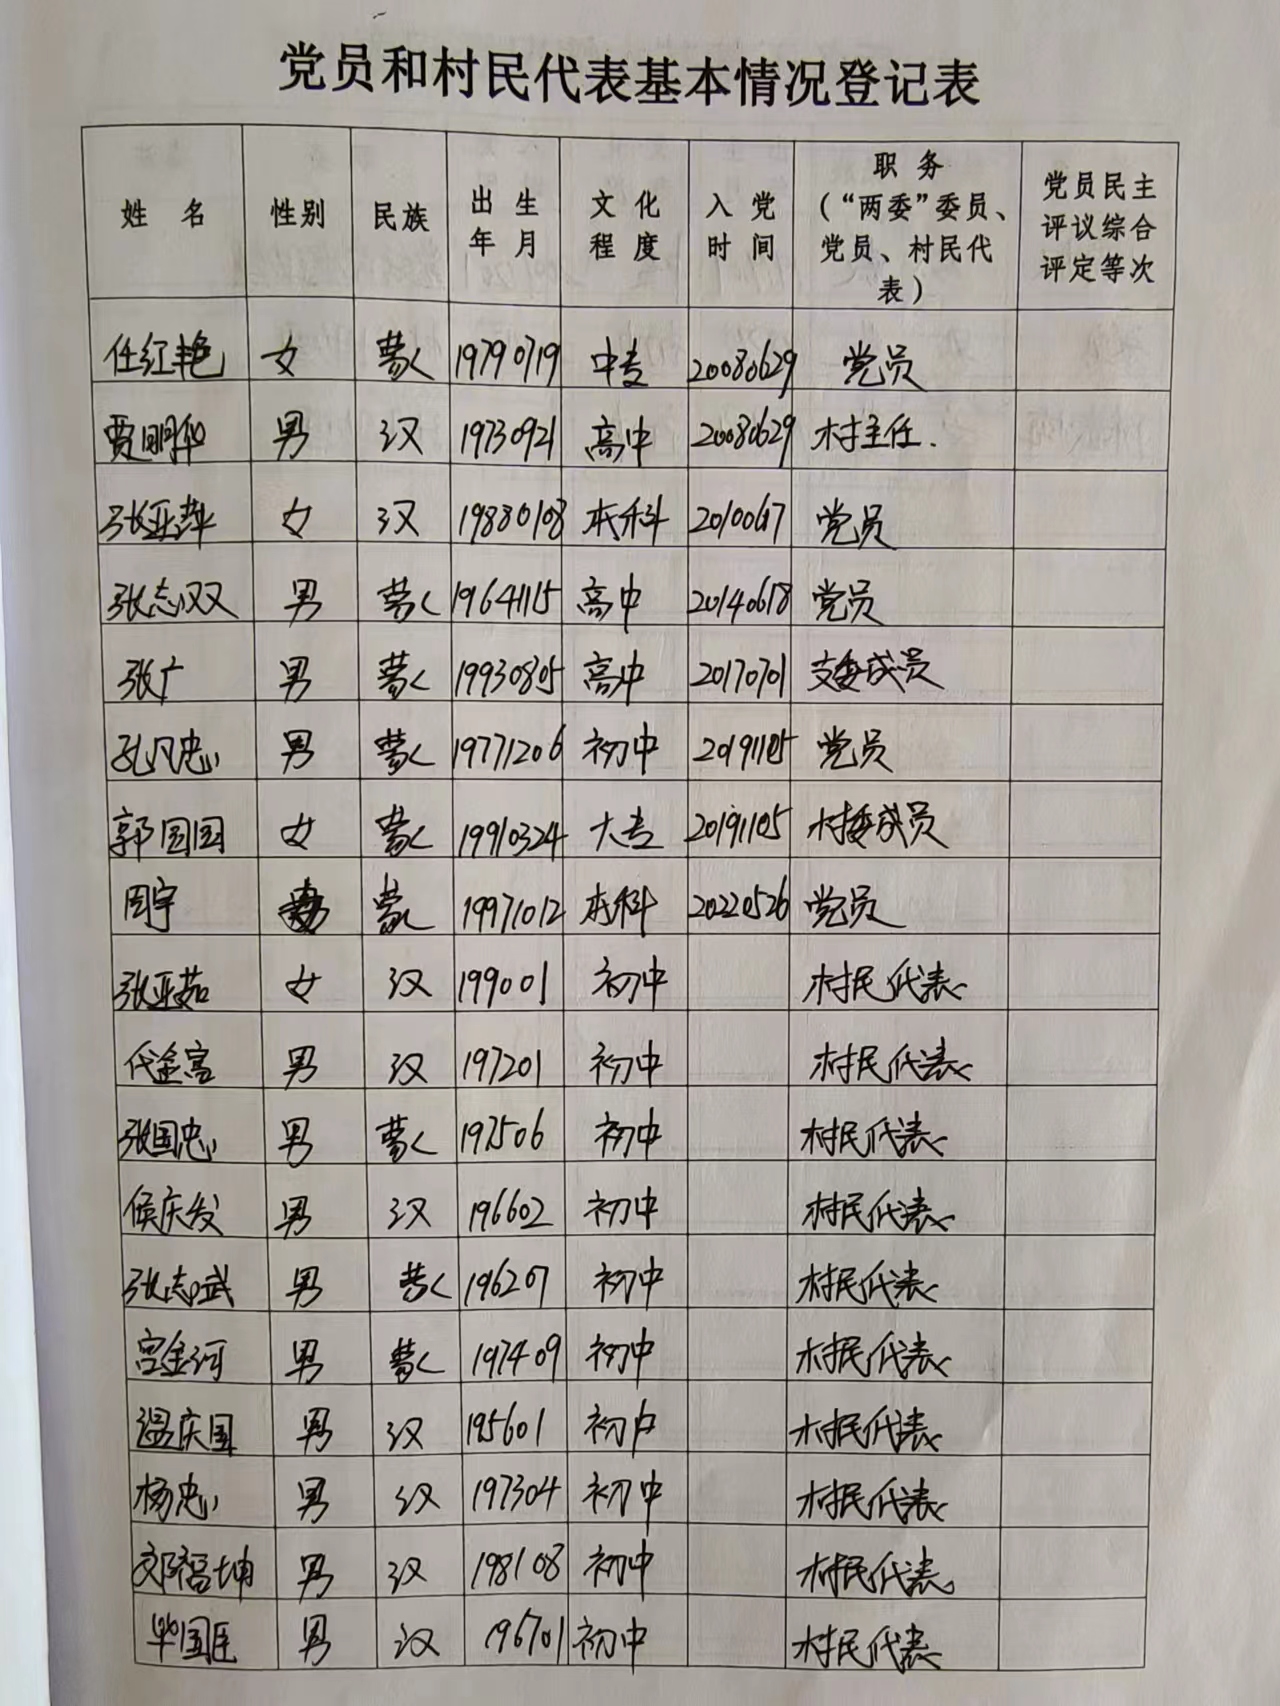 党员和村民代表基本情况登记表
姓 名 性别 民族 出生年月 文化程度 入党时间 职务（“两委”委员、党员、村民代表） 党员民主评议综合评定等次
任红艳 女 蒙 19790719 中专 20080629 党员
贾明华 男 汉 19730921 高中 20080629 村主任.
张亚萍 女 汉 19880108 本科 20100617 党员
张志双 男 蒙 19641115 高中 20140618 党员
张广 男 蒙 19930805 高中 20170701 支委成员
孔凡忠 男 蒙 19771206 初中 20191105 党员
郭国国 女 蒙 19910324 大专 20191105 村委成员
周宇 蒙 19971012 本科 20220526 党员
张亚茹 女 汉 199001 初中 村民代表
代金富 男 汉 197201 初中 村民代表
张国忠 男 蒙 197506 初中 村民代表
侯庆发 男 汉 196602 初中 村民代表
张志武 男 蒙 196207 初中 村民代表
宫金河 男 蒙 197409 初中 村民代表
温庆国 男 汉 195601 初中 村民代表
杨忠 男 汉 197304 初中 村民代表
邓福坤 男 汉 198108 初中 村民代表
毕国臣 男 汉 196701 初中 村民代表